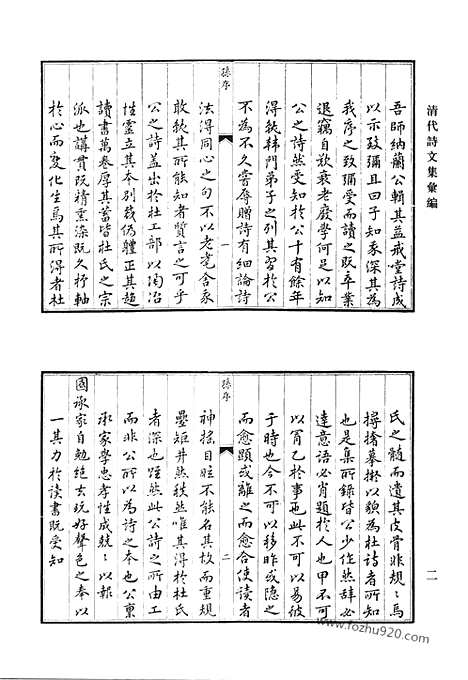 清代詩文集彙編
二
孫序
一
吾師納蘭公輯其益戒堂詩成
以示致彌且曰子知我深其為
我序之致彌受而讀之既卒業
退竊自歎衰老廢學何足以知
公之詩然受知於公十有餘年
得從韓門弟子之列其習於公
不為不久嘗辱贈詩有細論詩
法得同心之句不以老耄舍我
敢就其所能知者贊言之可乎
公之詩蓋出於杜工部以陶冶
性靈立其本別裁偽體正其趨
讀書萬卷厚其蓄皆杜氏之宗
派也講貫既精熏染既久杼軸
於心而變化生焉其所得者杜
孫序
二
氏之髓而遺其皮骨非規〻焉
撏撦摹擬以貌為杜詩者所知
也是集所錄皆公少作然辭必
達意語必肖題於人也甲不可
以為乙於事也此不可以易彼
于時也今不可以移昨或隱之
而愈顯或離之而愈合使讀者
神搖目眩不能名其故而重規
疊矩井然秩然唯其得於杜氏
者深也雖然此公詩之所由工
而非公所以為詩之本也公稟
承家學忠孝性成兢〻以報
國承家自勉絕去玩好聲色之奉以
一其力於讀書既受知
www.fozhu920.com